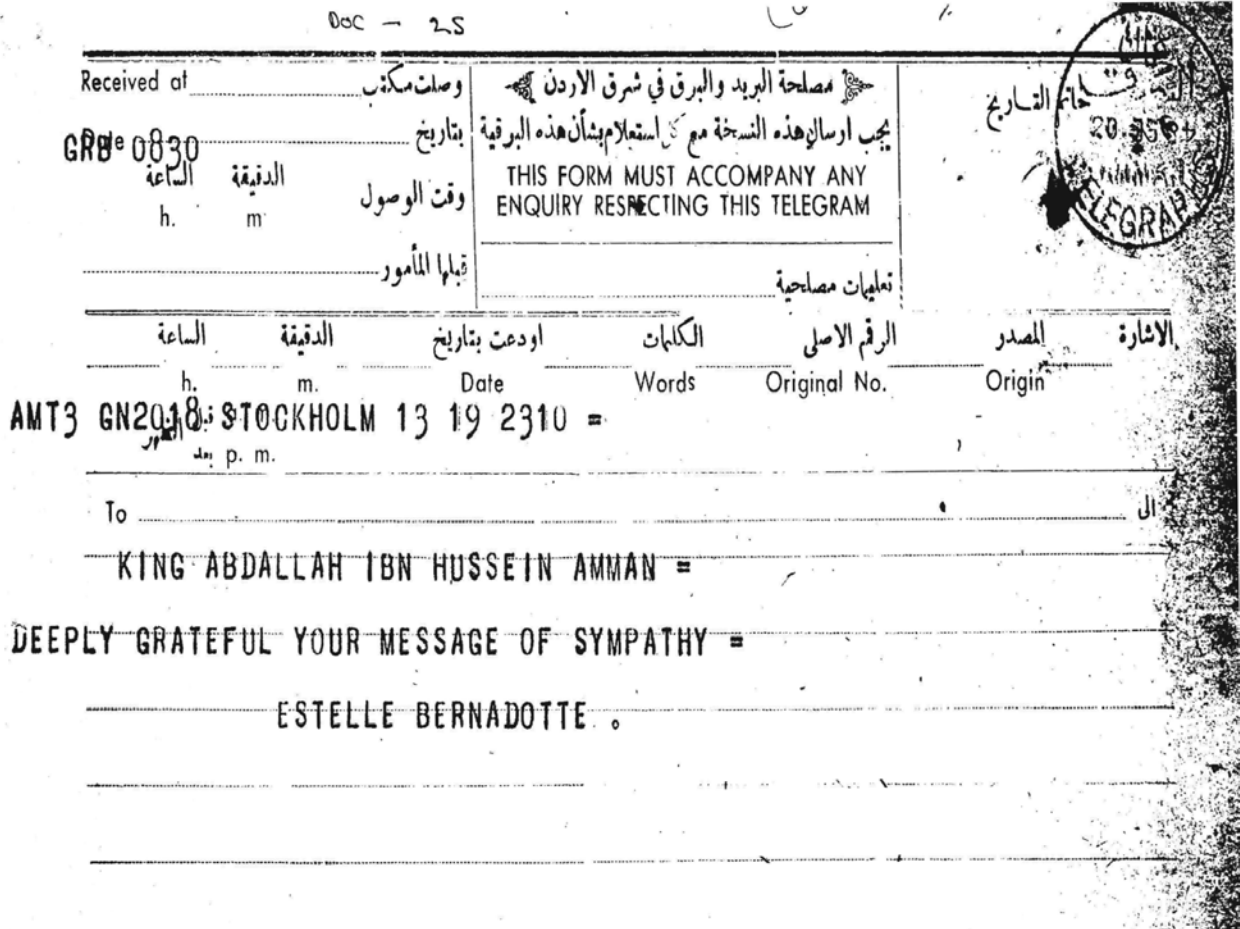 DOC - 25
Received at وصلت مكتب
GRB 0830 بتاريخ
الساعة الدقيقة
h. m وقت الوصول
قبلها المأمور
مصلحة البريد والبرق في شرق الاردن
يجب ارسال هذه النسخة مع كل استعلام بشأن هذه البرقية
THIS FORM MUST ACCOMPANY ANY
ENQUIRY RESPECTING THIS TELEGRAM
تعليمات مصلحية
خاتم التاريخ
20
TELEGRAPH
الاشارة المصدر الرقم الاصلى الكلمات اودعت بتاريخ الدقيقة الساعة
h. m. Date Words Original No. Origin
AMT3 GN2018 STOCKHOLM 13 19 2310 =
بعد p. m.
To الى
KING ABDALLAH IBN HUSSEIN AMMAN =
DEEPLY GRATEFUL YOUR MESSAGE OF SYMPATHY =
ESTELLE BERNADOTTE .